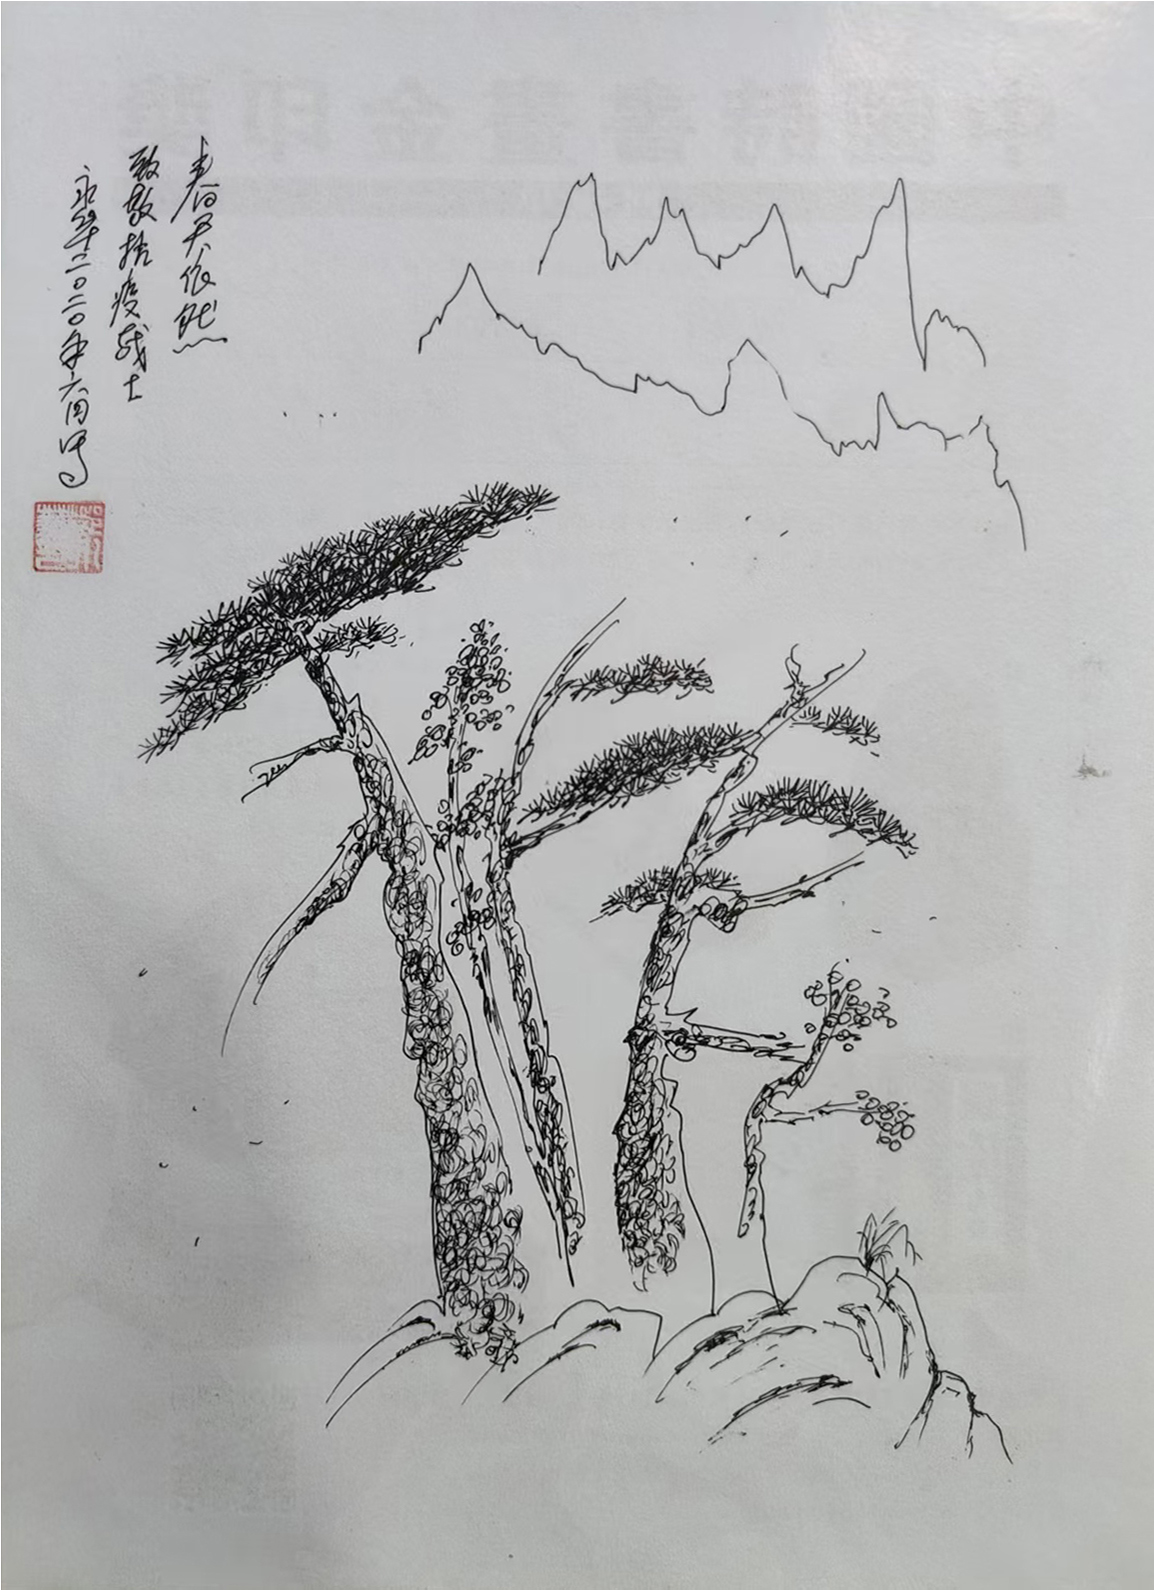 春天依然
致敬抗疫战士
永华二〇二〇年六月写